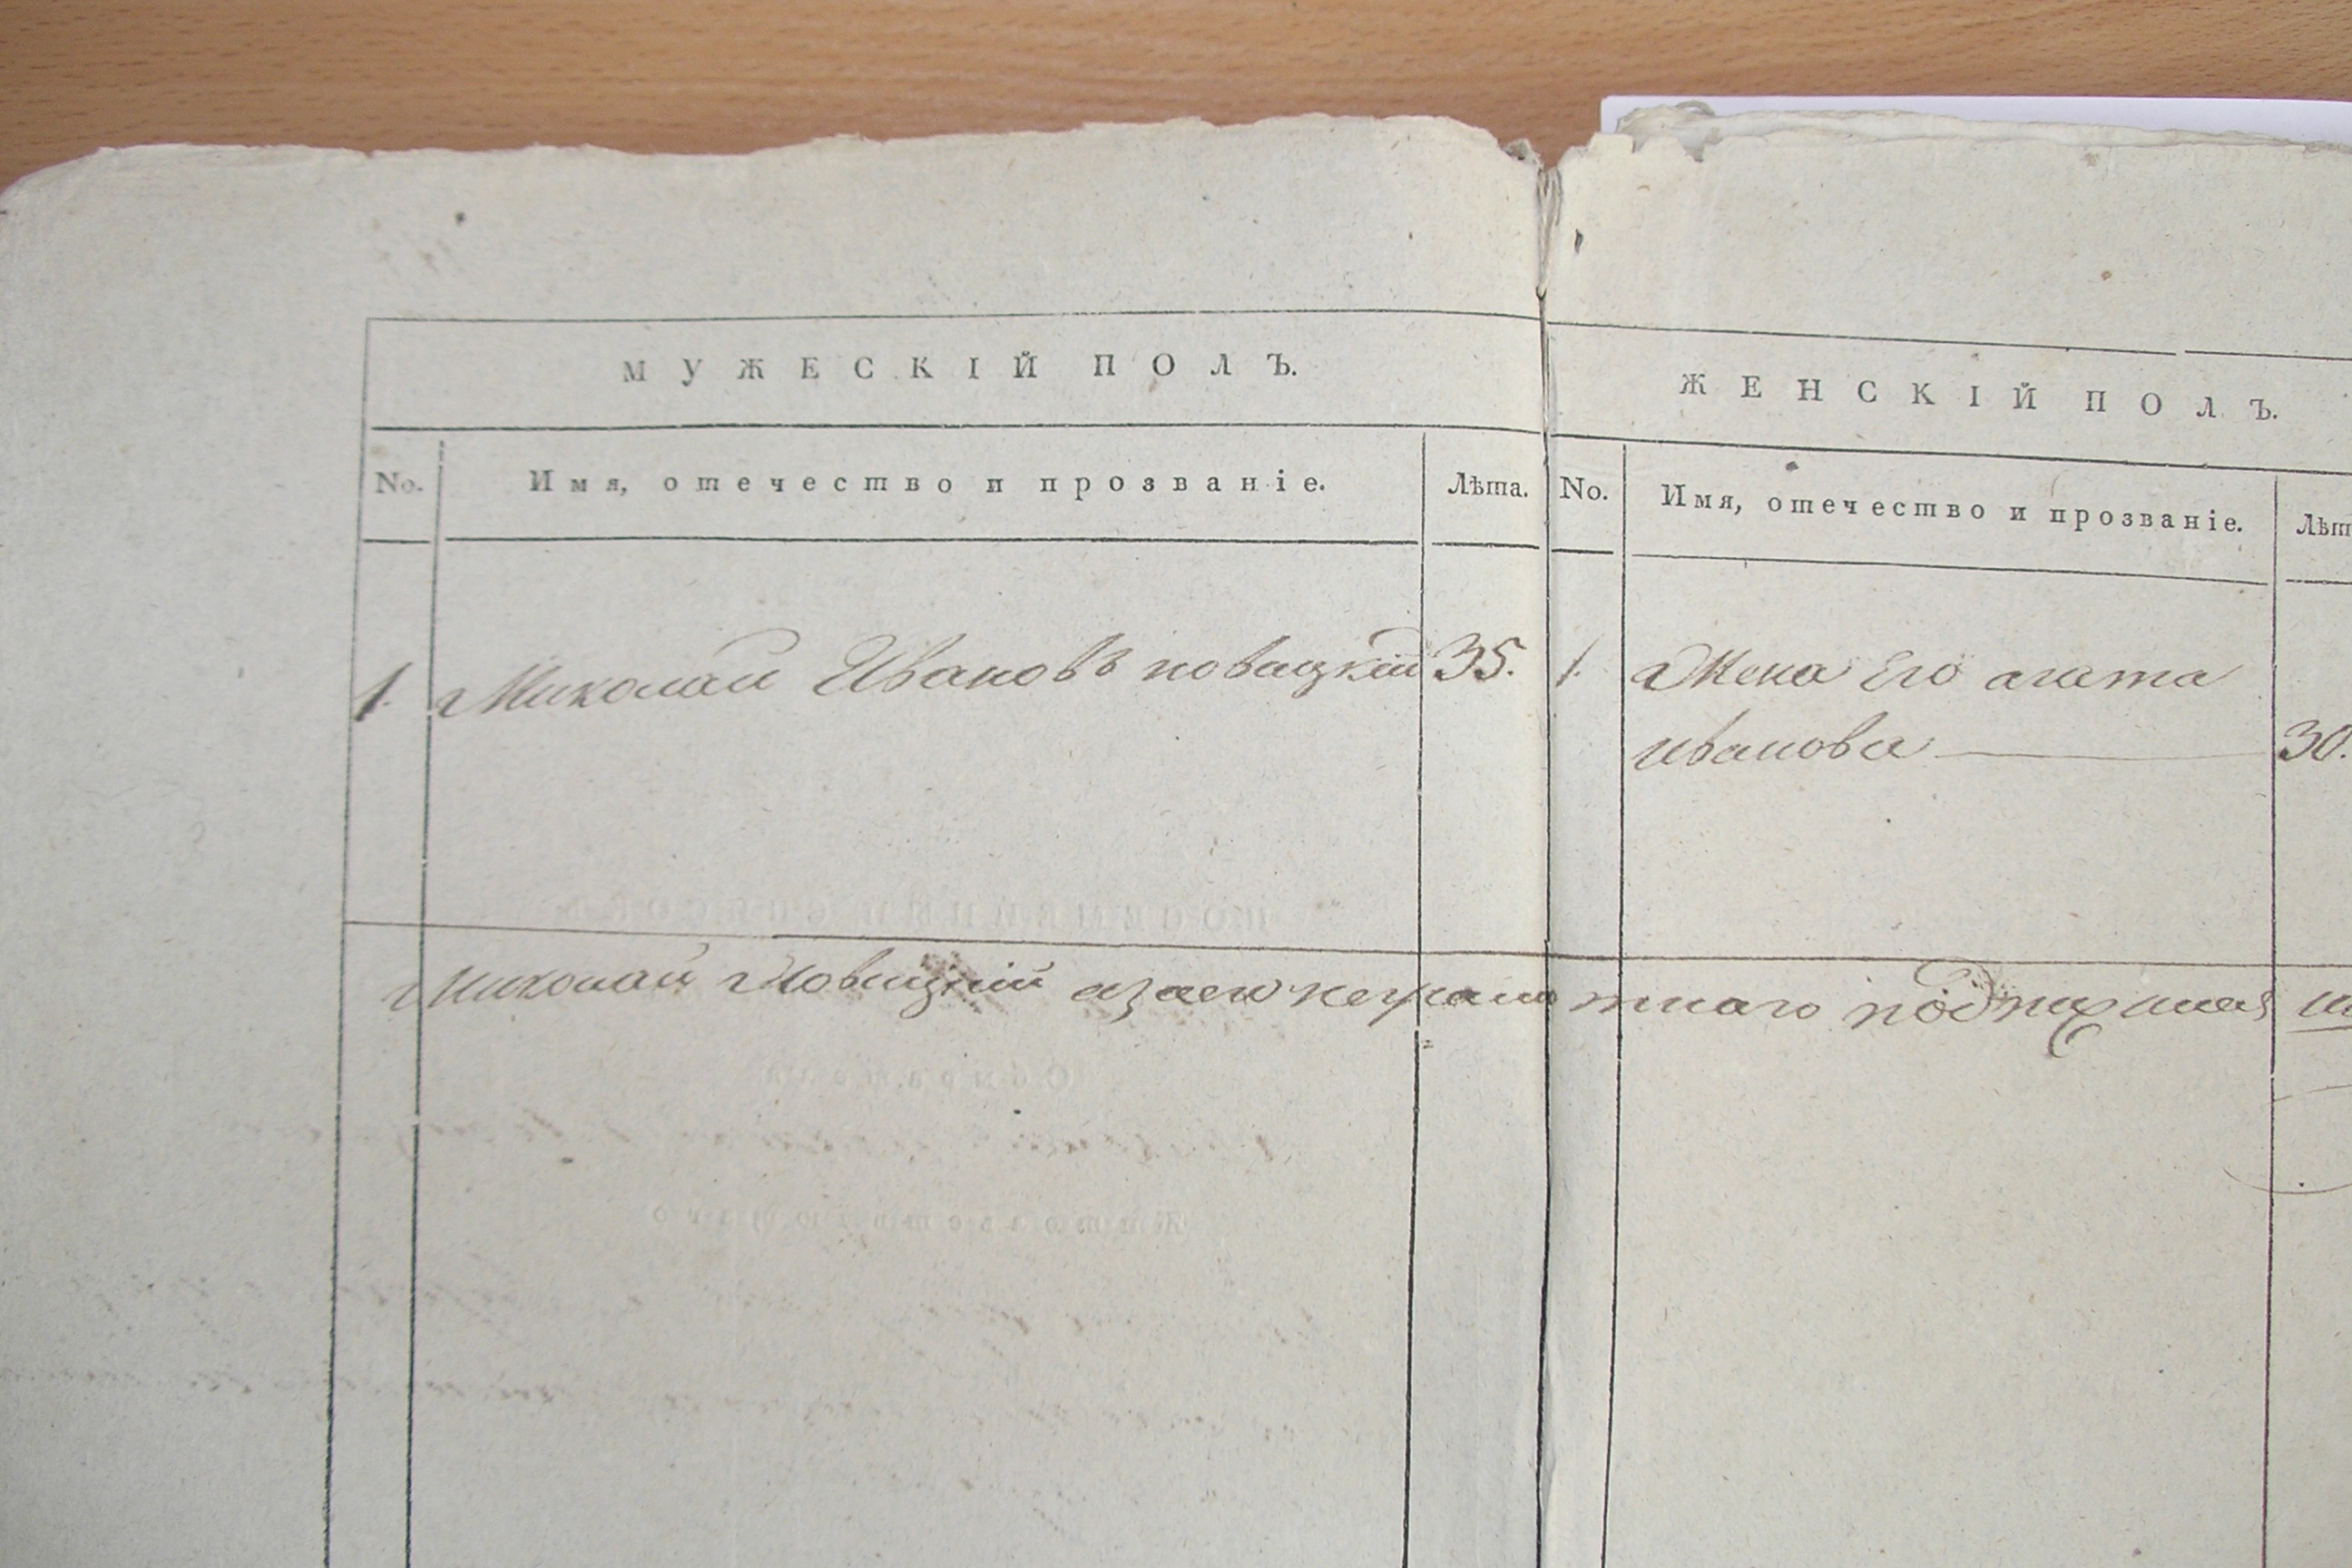 МУЖЕСКІЙ ПОЛЪ.
No. Имя, отечество и прозваніе. Лѣта.
1. Миколай Ивановъ новицкій 35.
ЖЕНСКІЙ ПОЛЪ.
No. Имя, отечество и прозваніе. Лѣт
1. Жена Его агата
иванова 30.
Миколай Новицкій азаего неграмотнаго подписался